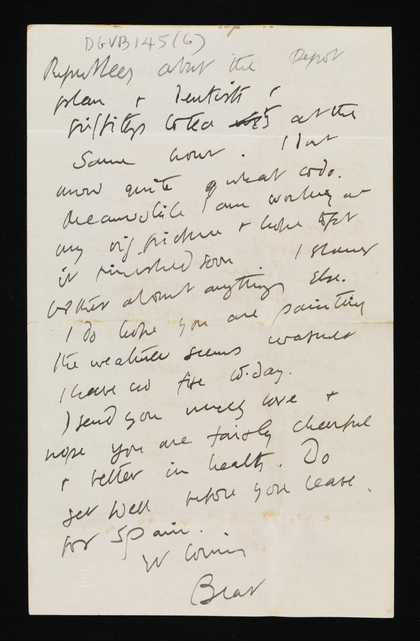 DGVB145(6)
about the Depot
plan +
to tea at the
same hour. I don't
know quite what to do.
Meanwhile I am working at
my big picture + hope to get
it finished soon I
bother about anything else.
I do hope you are painting
the weather seems warmer
I have no fire to-day.
I send you much love +
hope you are fairly cheerful
+ better in health. Do
get well before you leave.
for Spain.
Yr loving
Bear